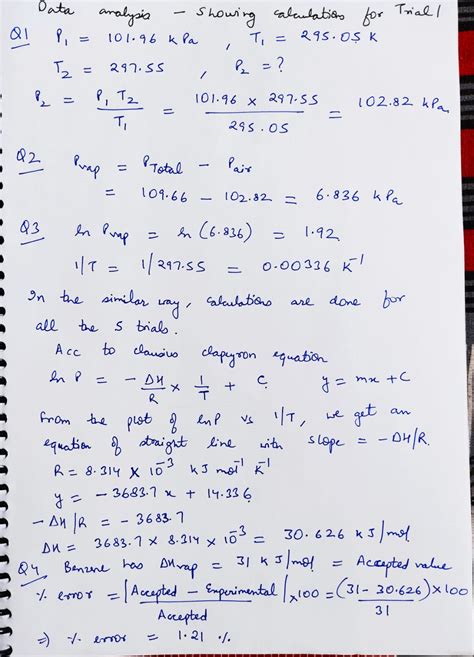 Data analysis - showing calculations for Trial 1
Q1 P₁ = 101.96 kPa , T₁ = 295.05 K
T₂ = 297.55 , P₂ = ?
P₂ = P₁ T₂ / T₁ = 101.96 × 297.55 / 295.05 = 102.82 kPa
Q2 Pvap = PTotal - Pair
= 109.66 - 102.82 = 6.836 kPa
Q3 ln Pvap = ln (6.836) = 1.92
1/T = 1/297.55 = 0.00336 K⁻¹
In the similar way, calculations are done for
all the 5 trials.
Acc to clausius clapyron equation
ln P = - ΔH/R × 1/T + C. y = mx + C
From the plot of lnP vs 1/T, we get an
equation of straight line with slope = -ΔH/R.
R = 8.314 × 10⁻³ kJ mol⁻¹ K⁻¹
y = -3683.7 x + 14.336
-ΔH/R = -3683.7
ΔH = 3683.7 × 8.314 × 10⁻³ = 30.626 kJ/mol
Q4 Benzene has ΔHvap = 31 kJ/mol = Accepted value
% error = |Accepted - Experimental / Accepted| × 100 = (31 - 30.626) × 100 / 31
⇒ % error = 1.21 %.